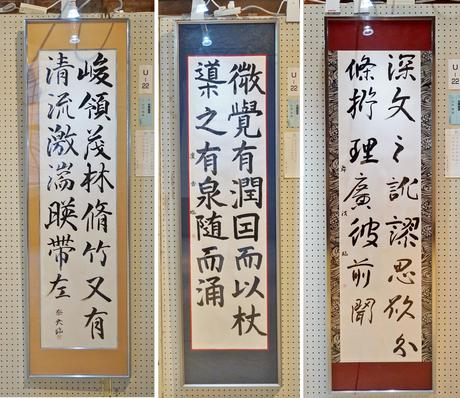 峻領茂林脩竹又有
清流激湍暎帶左
U-22
微覺有潤囙而以杖
導之有泉随而涌
U-22
深文之訛謬思欲分
條析理廣彼前聞
U-22